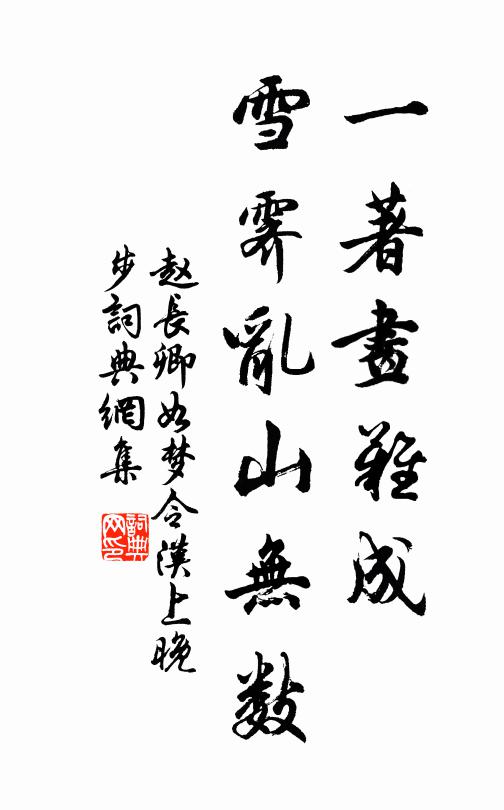 一著畫難成
雪霽亂山無數
赵長卿如梦令漢上晚
步詞典網集
詞典
网印